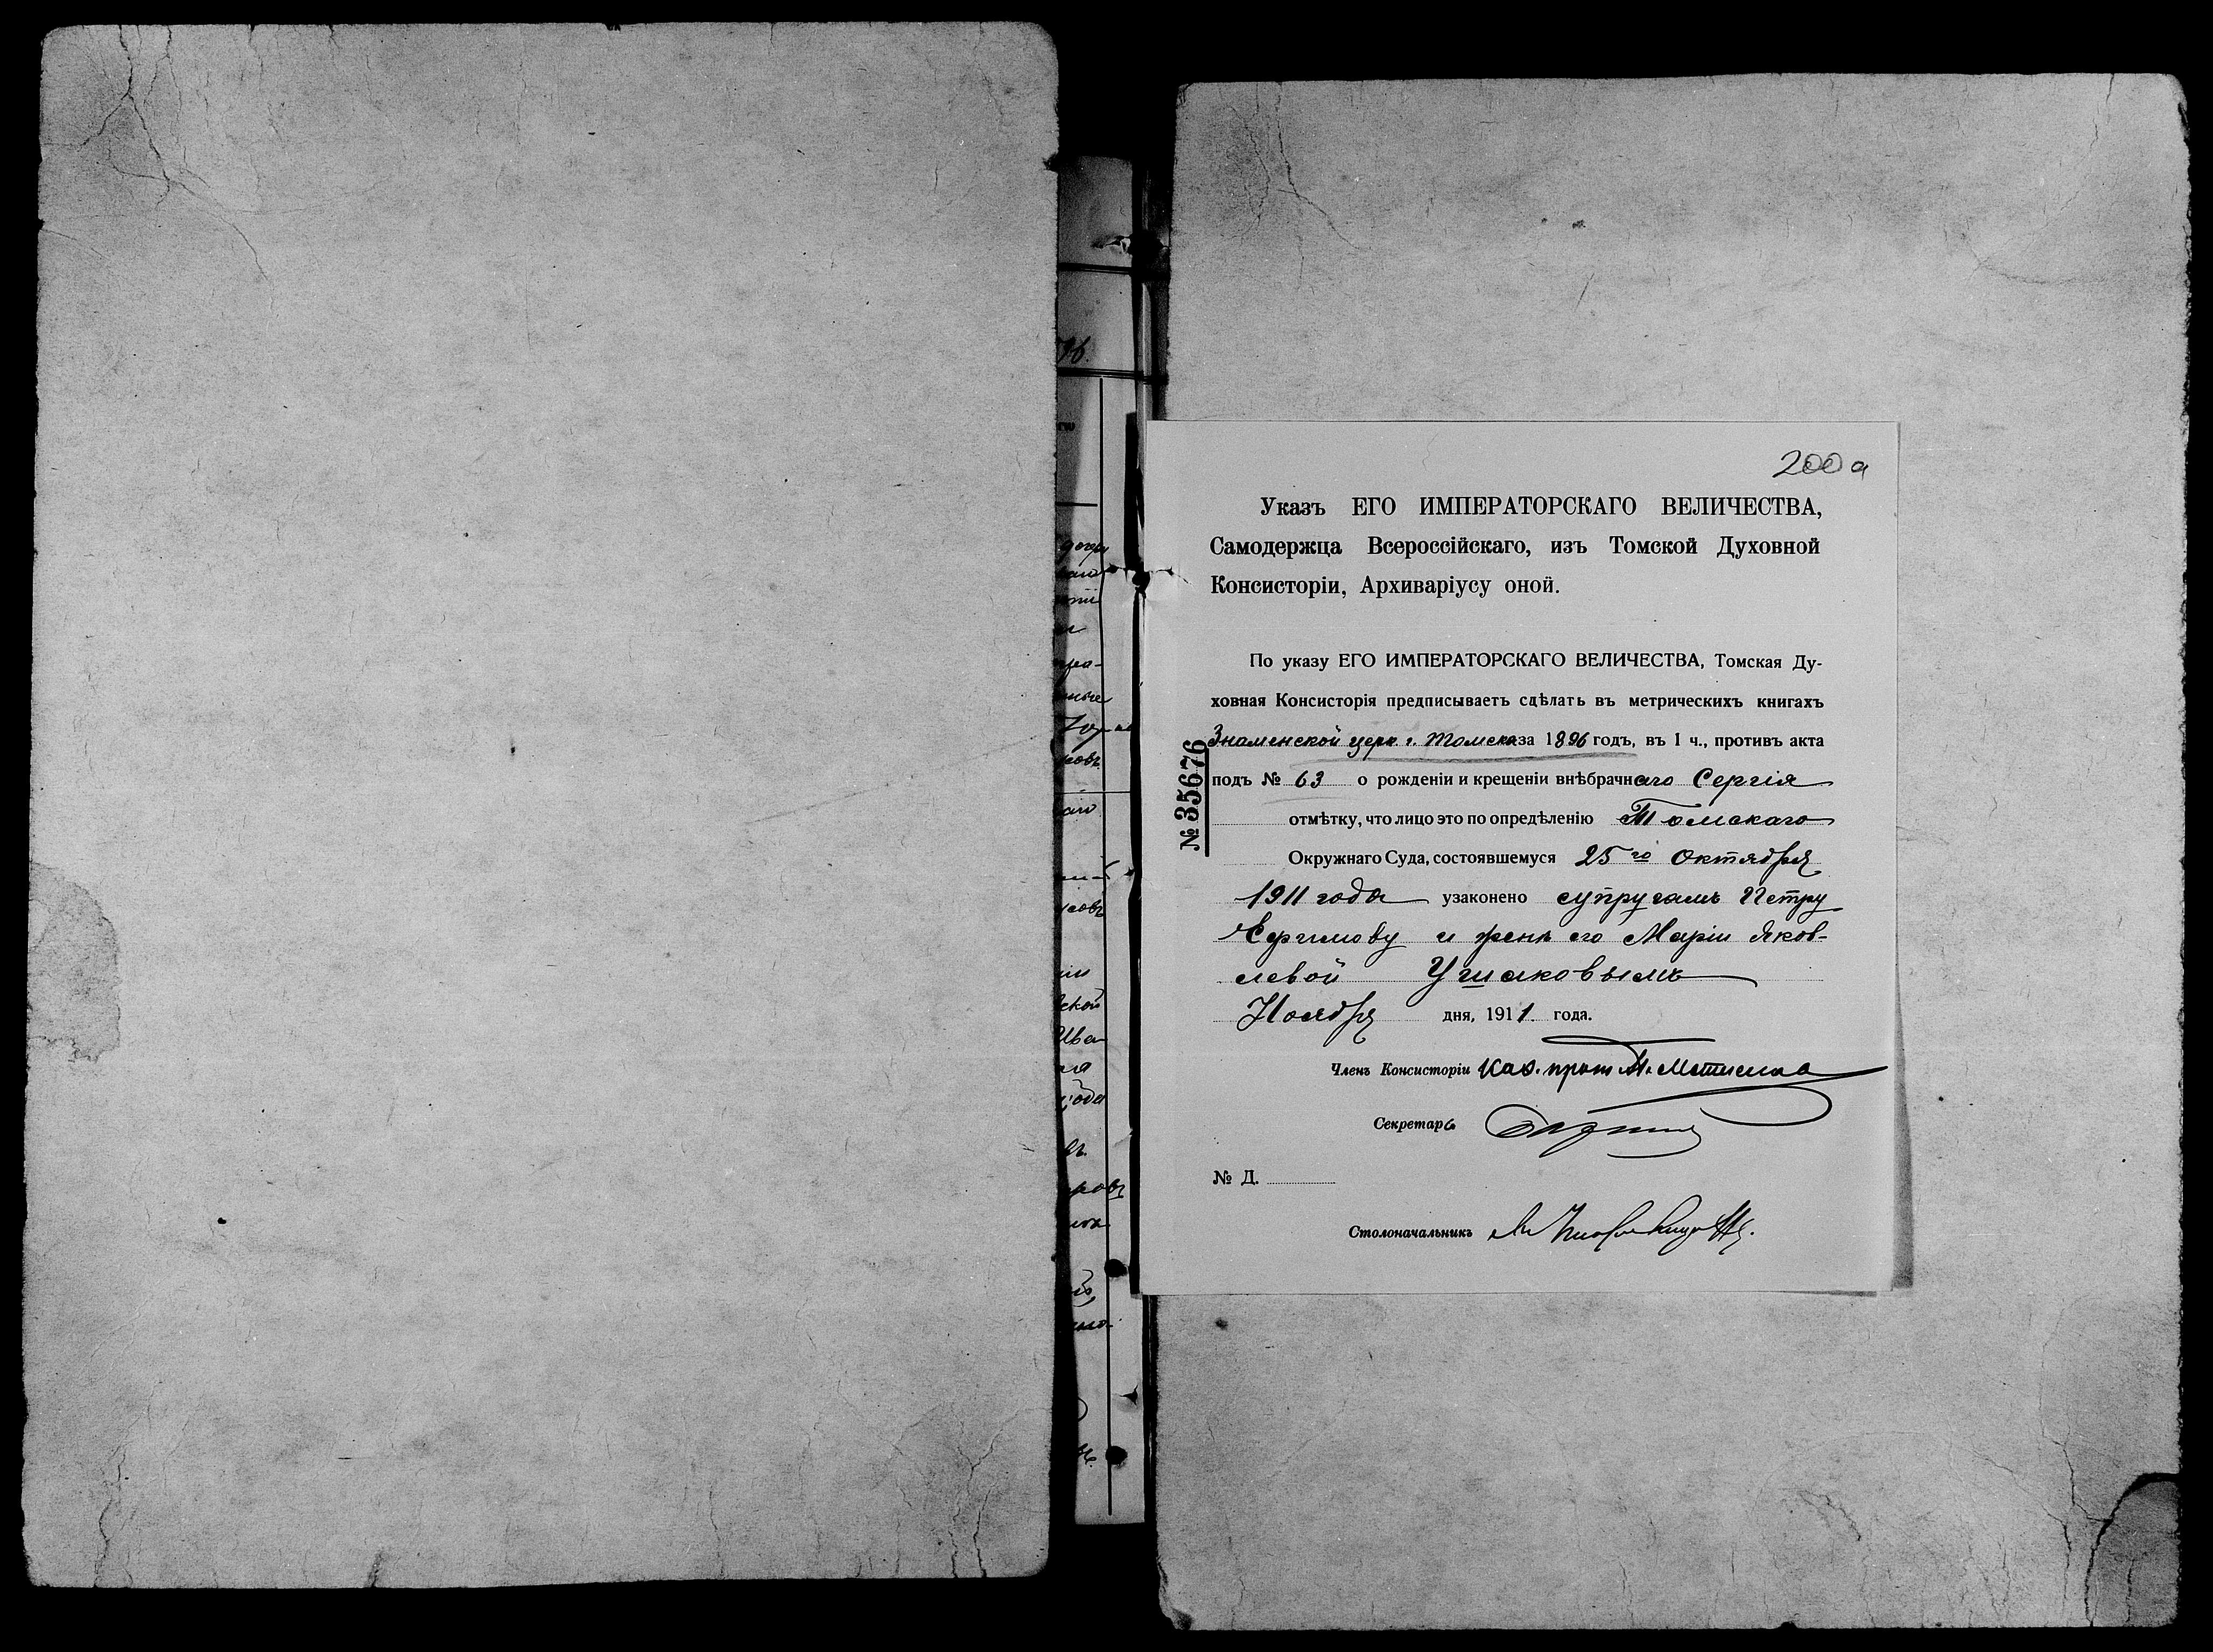 200 а
Указъ ЕГО ИМПЕРАТОРСКАГО ВЕЛИЧЕСТВА,
Самодержца Всероссійскаго, изъ Томской Духовной
Консисторіи, Архиваріусу оной.
По указу ЕГО ИМПЕРАТОРСКАГО ВЕЛИЧЕСТВА, Томская Ду-
ховная Консисторія предписываетъ сдѣлать въ метрическихъ книгахъ
Знаменской церк. г. Томска за 1896 годъ, въ 1 ч., противъ акта
подъ № 63 о рожденіи и крещеніи внѣбрачнаго Сергія
отмѣтку, что лицо это по опредѣленію Томскаго
Окружнаго Суда, состоявшемуся 25го Октября
1911 года узаконено супругамъ Петру
Ефимову и женѣ его Маріи Яков-
левой Ушаковымъ
Ноября дня, 1911. года.
Членъ Консисторіи Каѳ. прот.
Секретарь
№ Д.
Столоначальникъ
№ 35676